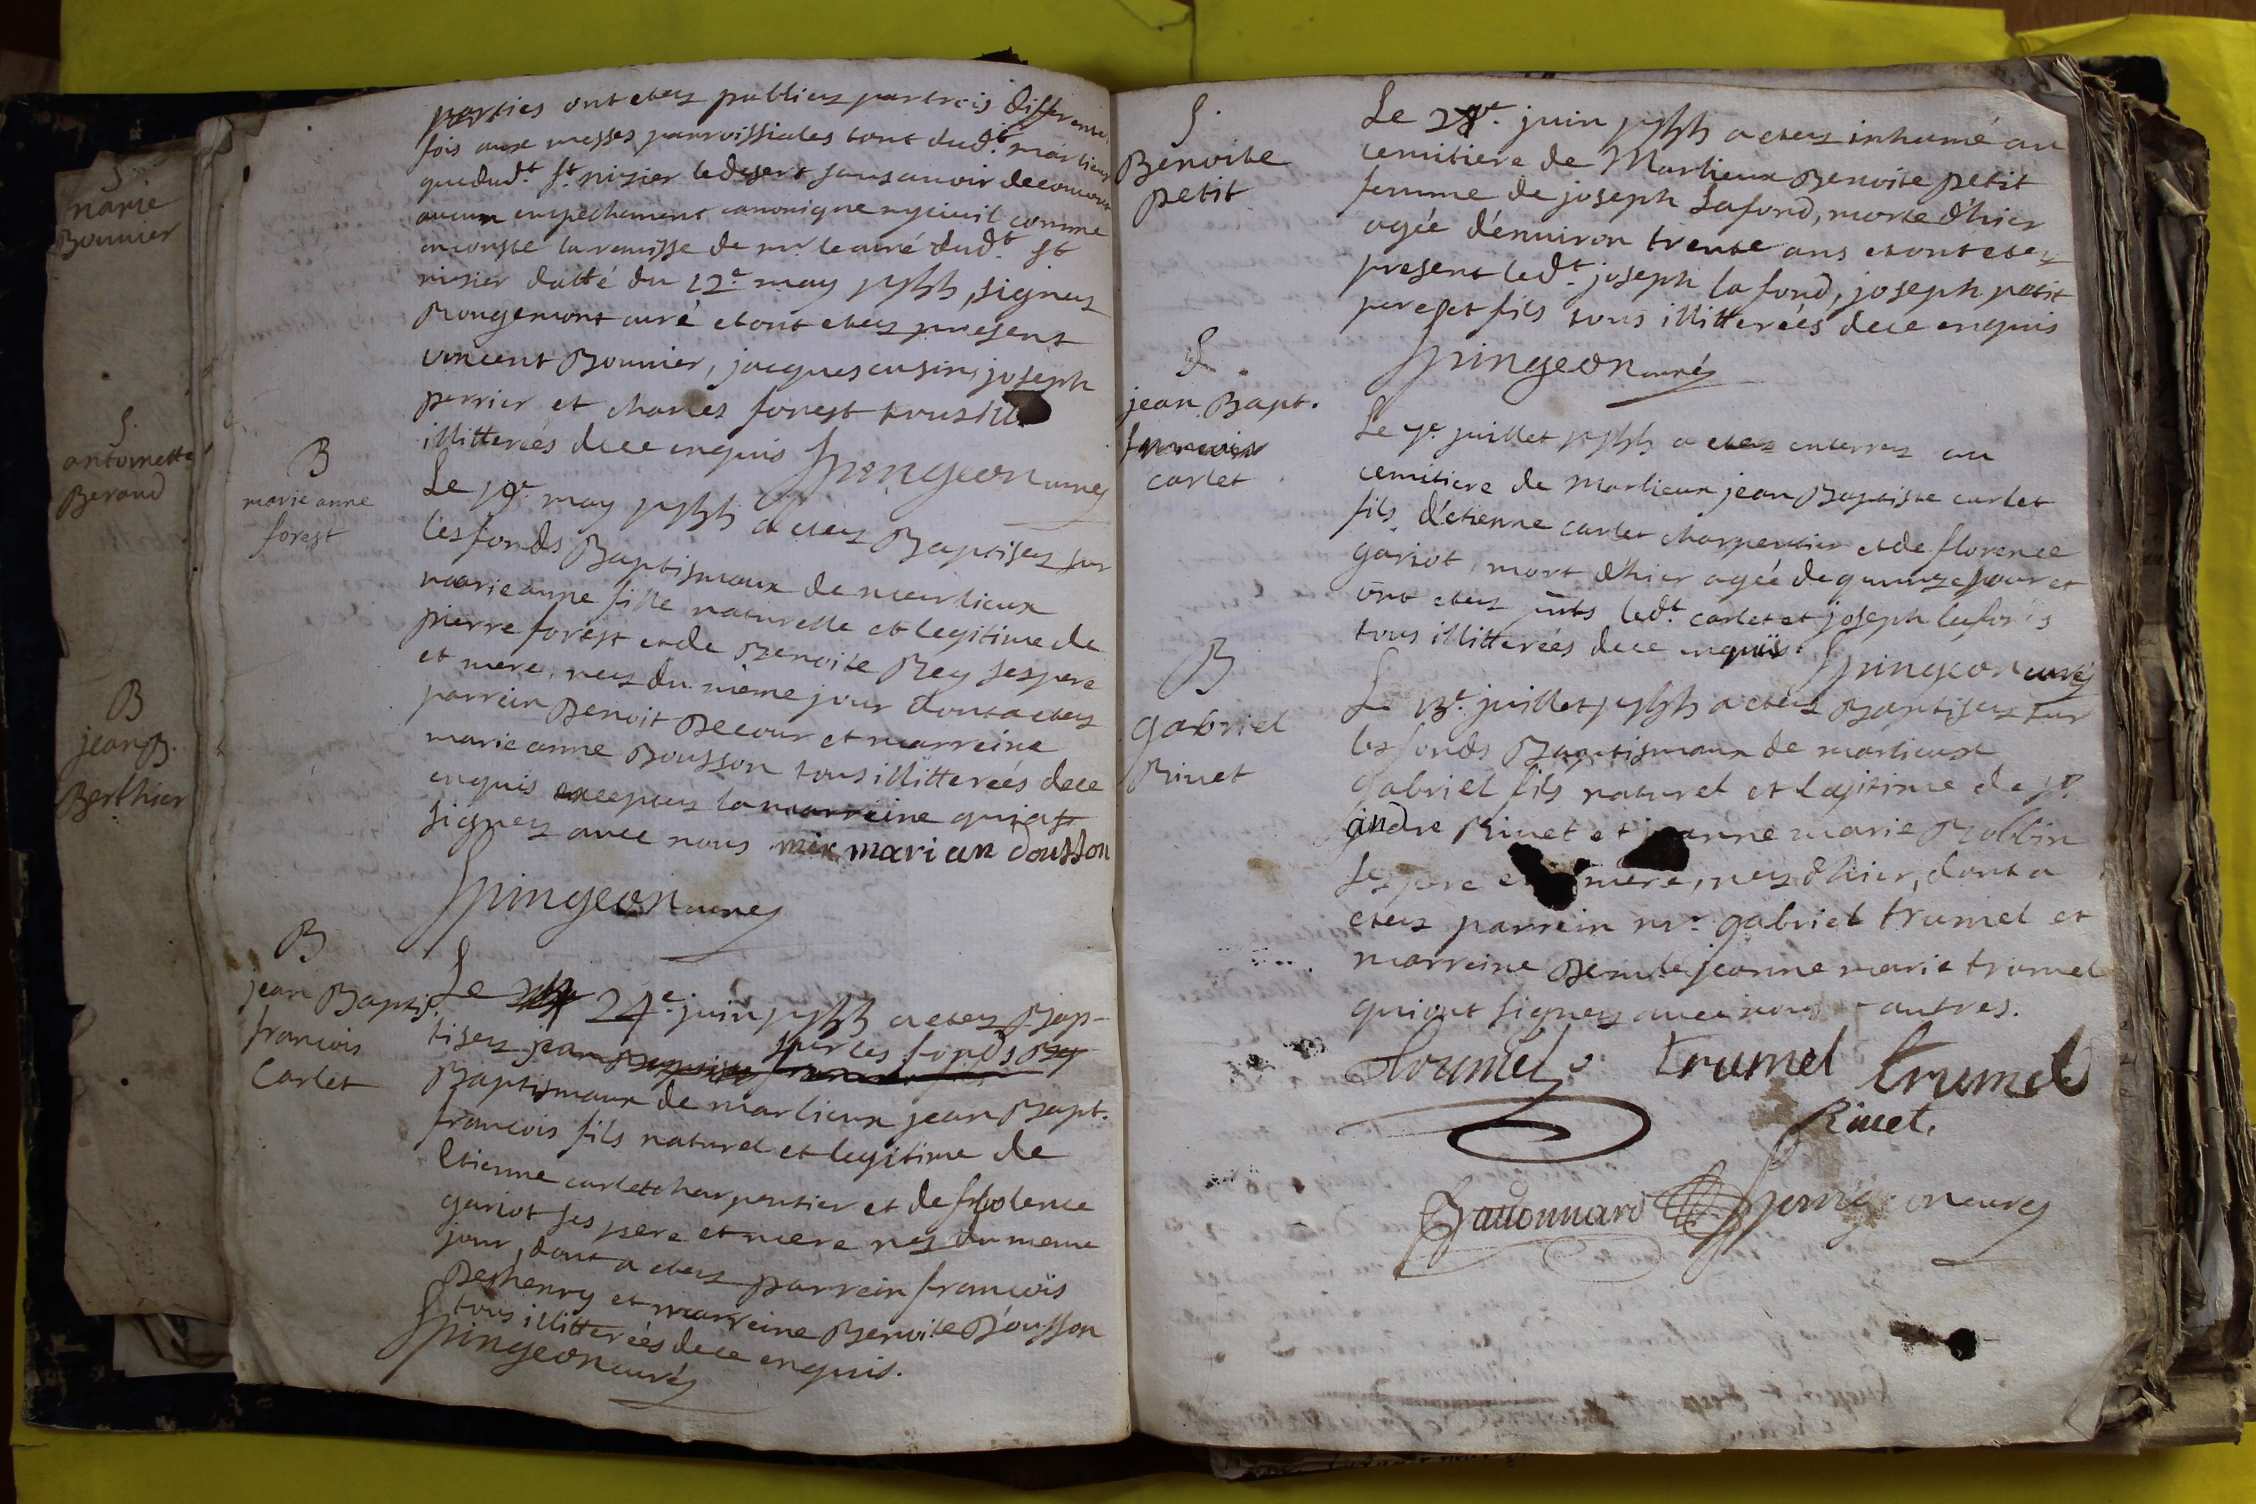 S.
marie
Bonnier
S.
antoinette
Beraud
B
jean B.
Berthier
parties ont etez publiez par trois differente
fois aux messes parroissiales tant dud.t marlieux
que dud.t s.t nizier le desert sans avoir decouvert
aucun empechement canonique ny civil comme
en conste la remisse de mr. le curé dud.t st
nizier datté du 12e may signez
Rougemont curé et ont etez present
vincent Bonnier, jacques cusin, joseph
perrier et charles forest tous
illitterées de ce enquis Spingeon curez
B
marie anne
forest
Le 19e. may a etez Baptisez sur
les fonds Baptismaux de marlieux
marie anne fille naturelle et legitime de
pierre forest et de Benoite Rey ses pere
et mere, nez du même jour dont a etez
parrein Benoit Decour et marreine
marie anne Bousson tous illitterées de ce
enquis exceptez la marreine qui a
signez avec nous marian bousson
Spingeon curez
B
jean Baptis.
francois
Carlet
Le 24e. juin a etez Bap-
tisez jean sur les fonds
Baptismaux de marlieux jean Bapt.
francois fils naturel et legitime de
Etienne carlet charpentier et de florence
gariot ses pere et mere nez du meme
jour, dont a etez parrein francois
Deshenry et marreine Benoite Bousson
tous illitterées de ce enquis.
Spingeon curéz
S.
Benoite
petit
Le 28e. juin a etez inhumé au
cemitiere de Marlieux Benoite petit
femme de joseph Lafond, morte d'hier
agée d'énviron trente ans et ont etez
present led.t joseph la fond, joseph petit
pere et fils tous illitterées de ce enquis
Spingeon curéz
S.
jean Bapt.
francois
carlet
Le 9e. juillet a etez enterrez au
cemitiere de Marlieux jean Baptiste carlet
fils d'étienne carlet charpentier et de florence
gariot, mort d'hier agée de quinze jour et
ont etez led.t carlet et joseph
tous illitterées de ce enquis. Spingeon curéz
B
gabriel
Rivet
Le 13e. juillet a etez Baptisez sur
les fonds Baptismaux de marlieux
gabriel fils naturel et legitime de sr.
andre Rivet et jeanne marie Robbin
ses pere et mere, nez d'hier, dont a
etéz parrein mr. gabriel trumel et
marreine jeanne marie trumel
qui ont signez avec nous autres.
trumel trumel
Rivet.
Spingeon curez